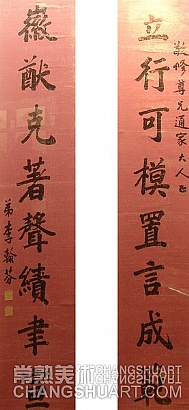 立行可模置言成範
敬修尊兄通家大人正
徽猷克著聲績聿宣
弟李翰芬
常熟美术 CHANGSHUART
CHANGSHUART.COM